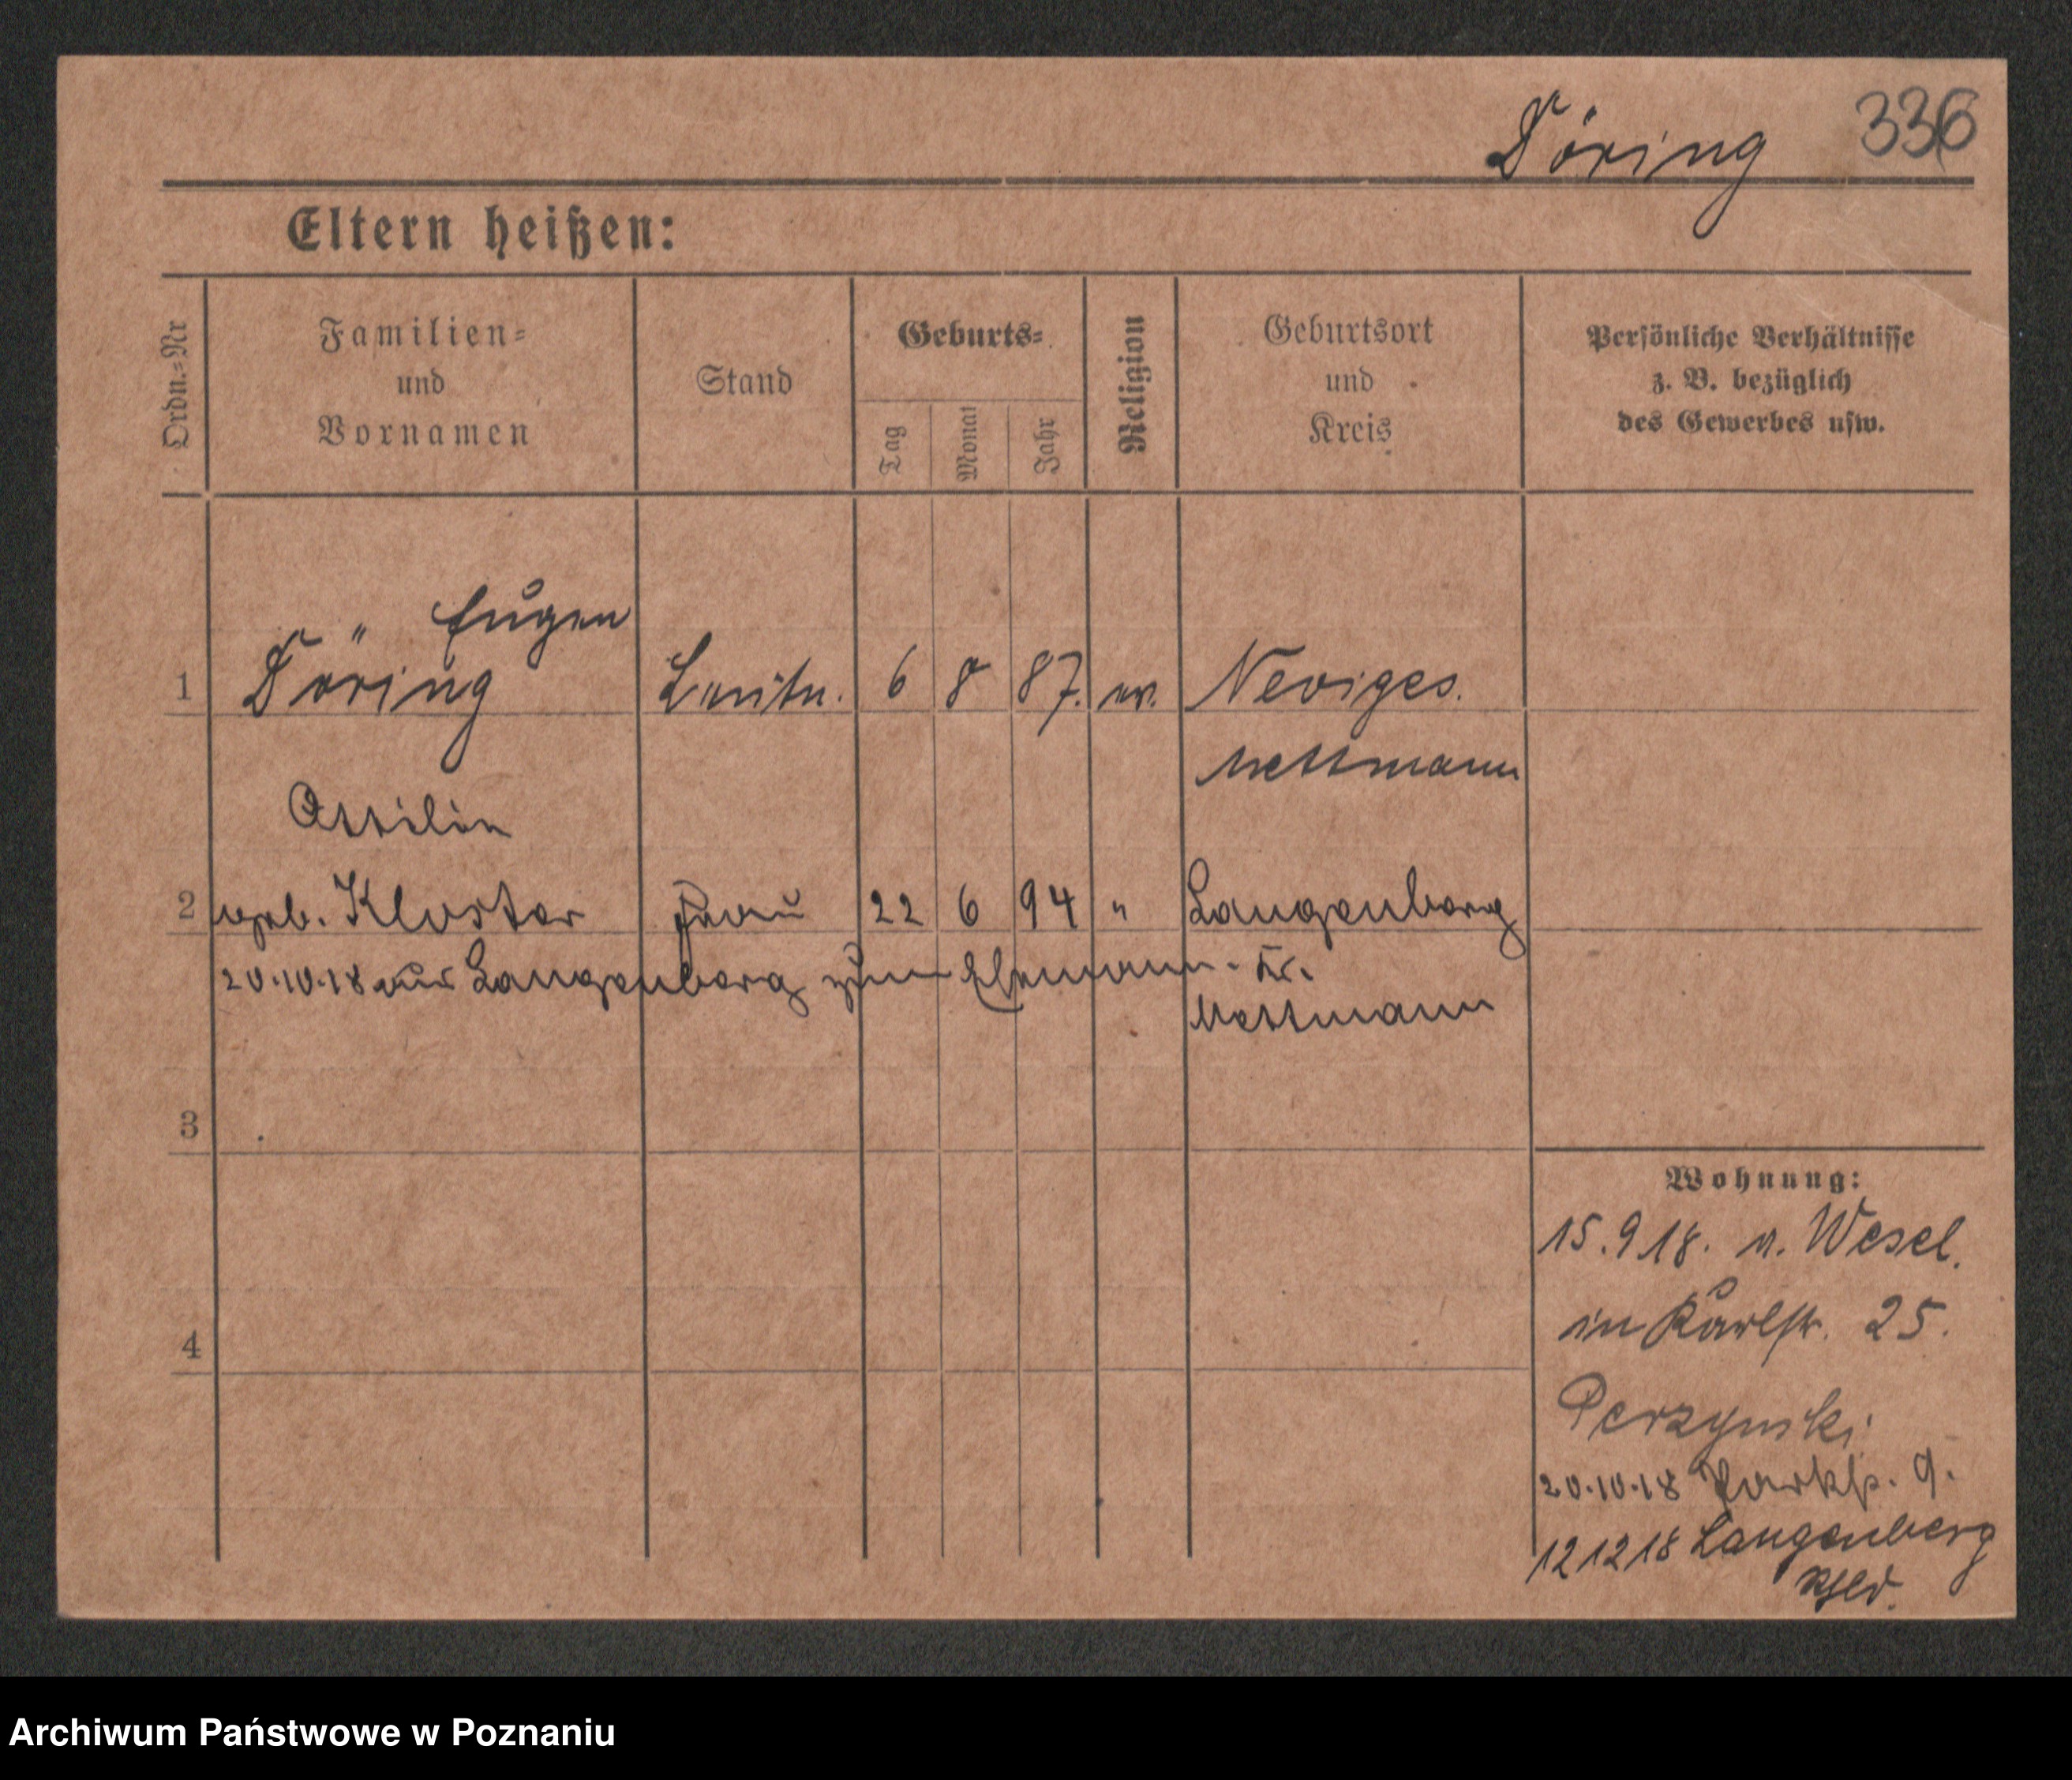 Döring 336
Eltern heißen:
Ordn.=Nr
Familien=
und
Vornamen
Stand
Geburts=
Tag
Monat
Jahr
Religion
Geburtsort
und
Kreis
Persönliche Verhältnisse
z. B. bezüglich
des Gewerbes usw.
Eugen
1 Döring Leutn. 6 8 87. ev. Neviges.
Mettmann
2 geb. Kloster Frau 22 6 94 " Langenberg
20.10.18 aus Langenberg zum Ehemann. Kr.
Mettmann
3
4
Wohnung:
15.9.18. a. Wesel.
in Karlstr. 25.
Perzynski
20.10.18 Parkstr. 9.
12 12 18 Langenberg
Rhld.
Archiwum Państwowe w Poznaniu